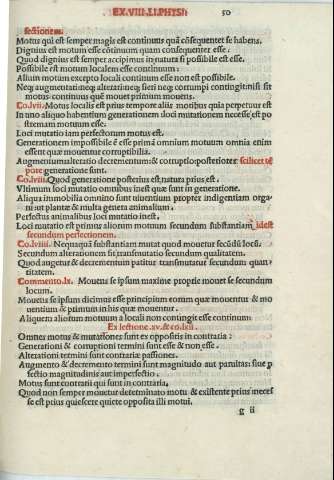 EX.VIII.LI.PHYSI: 50
sectionem.
Motus qui est semper magis est continuus quā cōsequenter se habens.
Dignius est motum esse cōtinuum quam consequenter esse.
Quod dignius est semper accipimus in natura si possibile est esse.
Possibile est motum localem esse continuum:
Alium motum excepto locali continuum esse non est possibile.
Neq; augmentari neq; alterari neq; fieri neq; corrumpi contingit nisi sit
motus continuus quē mouet primum mouens.
Co.lvii. Motus localis est prius tempore aliis motibus quia perpetuus est
In uno aliquo habentium generationem loci mutationem necesse est po
stremam motuum esse.
Loci mutatio iam perfectorum motus est.
Generationem impossibile ē esse primā omnium motuum omnia enim
essent quæ mouentur corruptibilia.
Augmentum alteratio decrementum & corruptio posteriores scilicet tē
pore generatione sunt.
Co.lviii. Quod generatione posterius est natura prius est.
Vltimum loci mutatio omnibus inest quæ sunt in generatione.
Aliqua immobilia omnino sunt uiuentium propter indigentiam orga
ni: ut plantæ & multa genera animalium.
Perfectis animalibus loci mutatio inest.
Loci mutatio est prima aliorum motuum secundum substantiam, idest
secundum perfectionem.
Co.lviiii. Nequaquā substantiam mutat quod mouetur secūdū locū.
Secundum alterationem fit transmutatio secundum qualitatem.
Quod augetur & decrementum patitur transmutatur secundum quan
titatem.
Commento.lx. Mouens se ipsum maxime proprie mouet se secundum
locum.
Mouens se ipsum dicimus esse principium eorum quæ mouentur & mo
uentium & primum in his quæ mouentur.
Aliquem aliorum motuum a locali non contingit esse continuum.
Ex lectione.xv.& co.lxii.
Omnes motus & mutationes sunt ex oppositis in contraria:
Generationi & corruptioni termini sunt esse & non esse.
Alterationi termini sunt contrariæ passiones.
Augmento & decremento termini sunt magnitudo aut paruitas: siue p
fectio magnitudinis aut imperfectio.
Motus sunt contrarii qui sunt in contraria.
Quod non semper mouetur determinato motu & existente prius neces
se est prius quiescere quiete opposita illi motui.
g ii